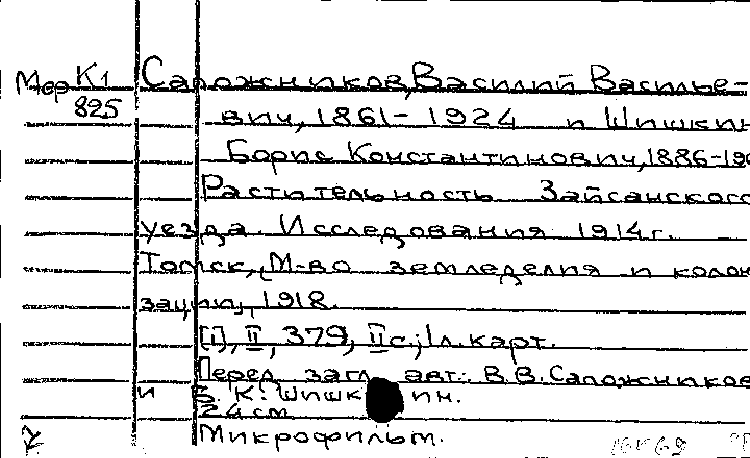 Мер К1 Сапожников, Василий Василье-
825 вич, 1861-1924 и Шишкин
Борис Константинович, 1886-19
Растительность Зайсанского
уезда. Исследования 1914г. —
Томск, М-во земледелия и колон
зации, 1918.
[I], II, 379, II с.; 1 л. карт.
Перед загл. авт.: В.В. Сапожников
и Б. К. Шишкин.
24 см
Микрофильм.